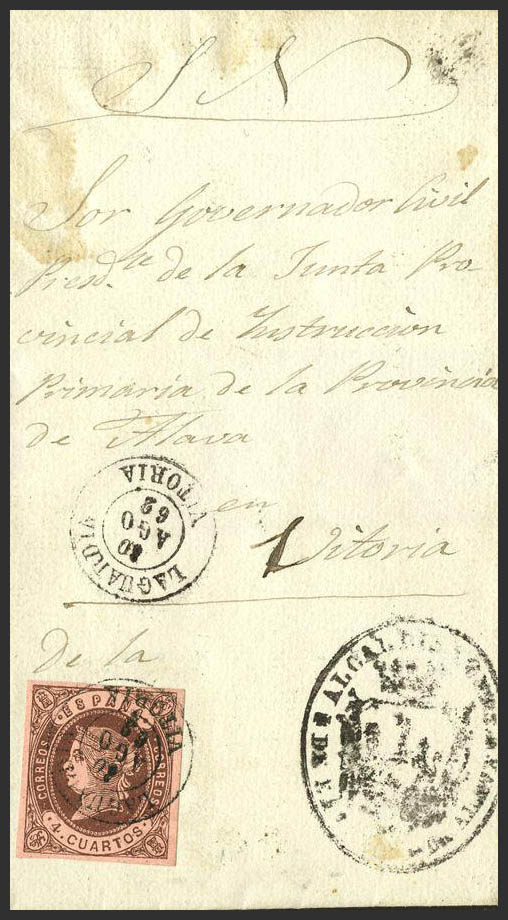 S N
Sor Governador Civil
Presd.te de la Junta Pro-
vincial de Instruccion
Primaria de la Provincia
de Alava
en
Vitoria
LAGUARDIA
AGO
62
VITORIA
De la
ALCAL
CORREOS · ESPAÑA · CORREOS
4 CUARTOS
AGO
62
VITORIA